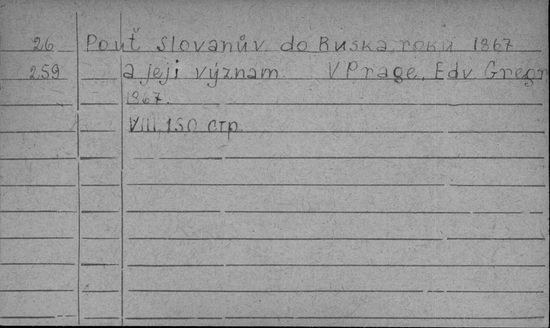 26 Pouť Slovanův do Ruska roku 1867
259 a její význam V Prage, Edv Gregr
1867.
VIII, 150 стр.